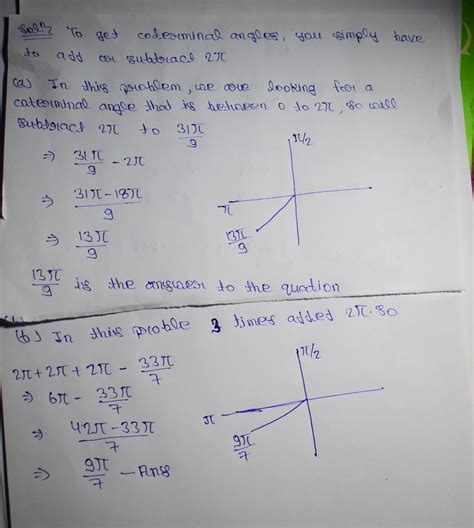 Solⁿ: To get coterminal angles, you simply have
to add or subtract 2π
(a) In this problem, we are looking for a
coterminal angle that is between 0 to 2π, so will
subtract 2π to 31π/9
⇒ 31π/9 - 2π
⇒ (31π - 18π)/9
⇒ 13π/9
π/2
π
13π/9
13π/9 is the answer to the quation
(b) In this proble 3 times added 2π. so
2π + 2π + 2π - 33π/7
⇒ 6π - 33π/7
⇒ (42π - 33π)/7
⇒ 9π/7 - Ans
π/2
π
9π/7